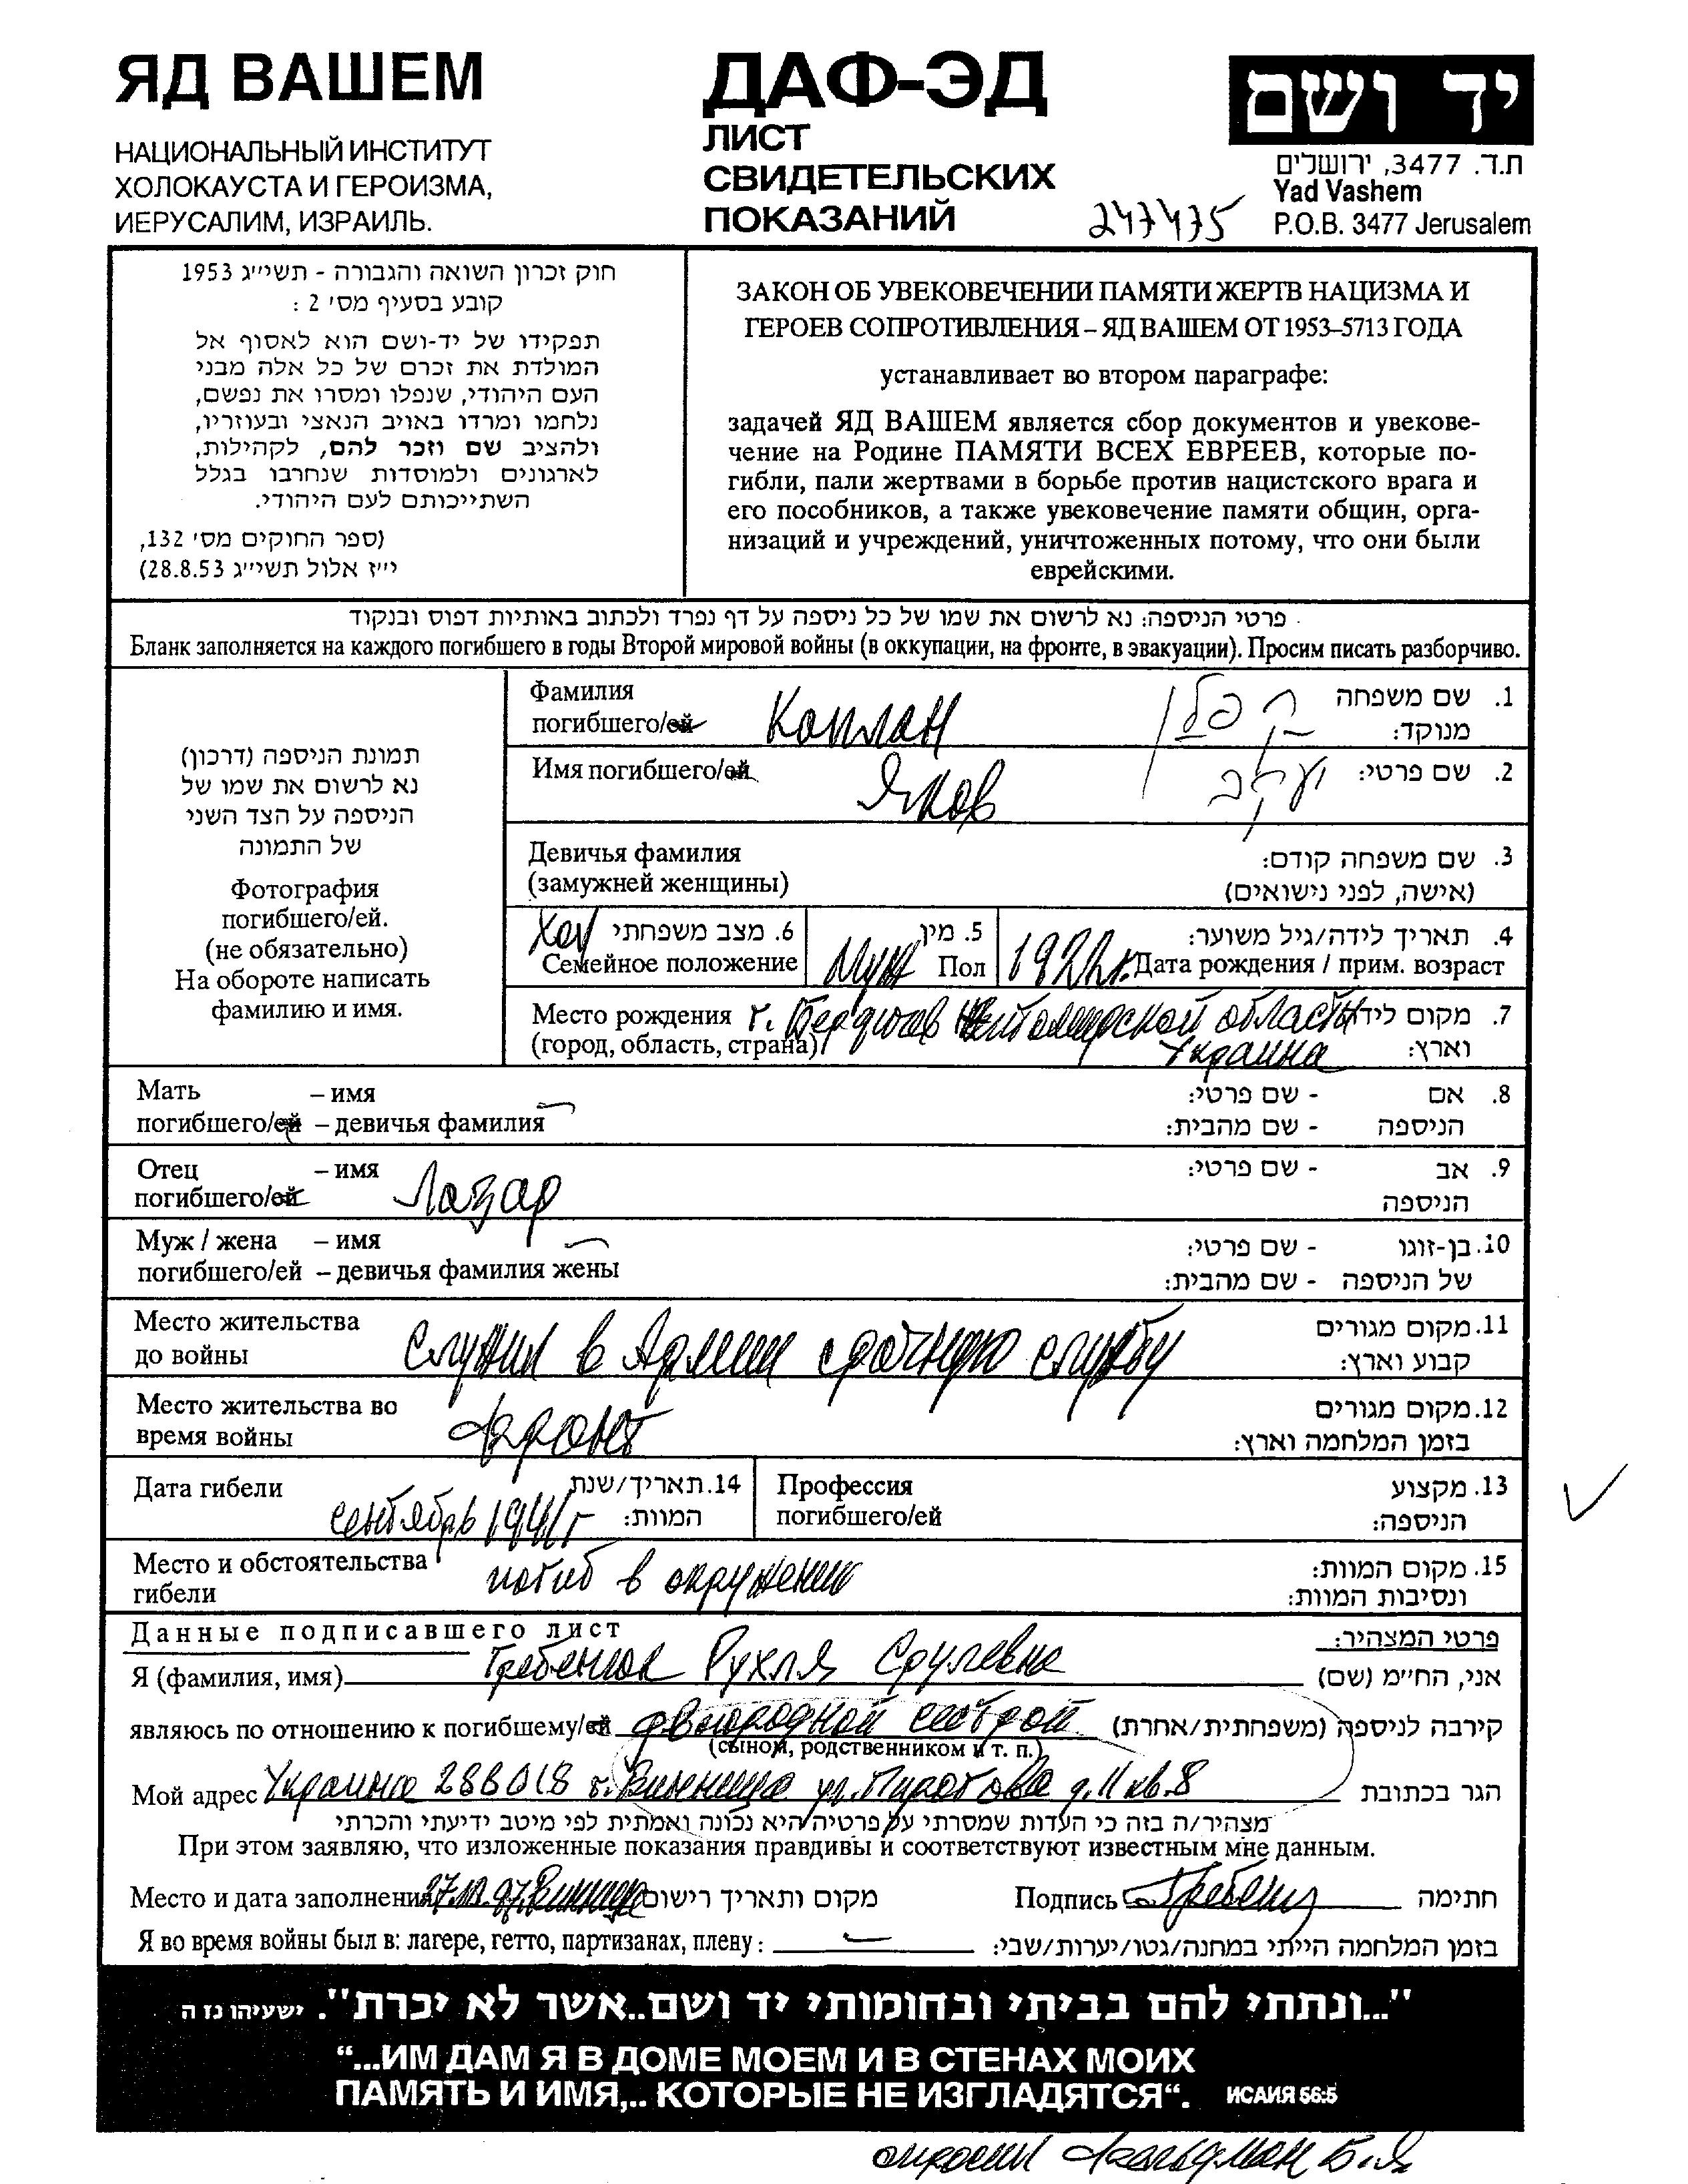 ЯД ВАШЕМ
НАЦИОНАЛЬНЫЙ ИНСТИТУТ
ХОЛОКАУСТА И ГЕРОИЗМА,
ИЕРУСАЛИМ, ИЗРАИЛЬ.
ДАФ-ЭД
ЛИСТ
СВИДЕТЕЛЬСКИХ
ПОКАЗАНИЙ
247475
יד ושם
ת.ד. 3477, ירושלים
Yad Vashem
P.O.B. 3477 Jerusalem
חוק זכרון השואה והגבורה - תשי״ג 1953
קובע בסעיף מס׳ 2 :
תפקידו של יד-ושם הוא לאסוף אל
המולדת את זכרם של כל אלה מבני
העם היהודי, שנפלו ומסרו את נפשם,
נלחמו ומרדו באויב הנאצי ובעוזריו,
ולהציב שם וזכר להם, לקהילות,
לארגונים ולמוסדות שנחרבו בגלל
השתייכותם לעם היהודי.
(ספר החוקים מס׳ 132,
י״ז אלול תשי״ג 28.8.53)
ЗАКОН ОБ УВЕКОВЕЧЕНИИ ПАМЯТИ ЖЕРТВ НАЦИЗМА И
ГЕРОЕВ СОПРОТИВЛЕНИЯ – ЯД ВАШЕМ ОТ 1953–5713 ГОДА
устанавливает во втором параграфе:
задачей ЯД ВАШЕМ является сбор документов и увекове-
чение на Родине ПАМЯТИ ВСЕХ ЕВРЕЕВ, которые по-
гибли, пали жертвами в борьбе против нацистского врага и
его пособников, а также увековечение памяти общин, орга-
низаций и учреждений, уничтоженных потому, что они были
еврейскими.
פרטי הניספה: נא לרשום את שמו של כל ניספה על דף נפרד ולכתוב באותיות דפוס ובנקוד
Бланк заполняется на каждого погибшего в годы Второй мировой войны (в оккупации, на фронте, в эвакуации). Просим писать разборчиво.
תמונת הניספה (דרכון)
נא לרשום את שמו של
הניספה על הצד השני
של התמונה
Фотография
погибшего/ей.
(не обязательно)
На обороте написать
фамилию и имя.
Фамилия
погибшего/ей Каплан קפלן
1. שם משפחה
מנוקד:
Имя погибшего/ей Яков יעקב 2. שם פרטי:
Девичья фамилия
(замужней женщины)
3. שם משפחה קודם:
(אישה, לפני נישואים)
Хол 6. מצב משפחתי
Семейное положение
5. מין
Муж Пол
4. תאריך לידה/גיל משוער:
1922г. Дата рождения / прим. возраст
Место рождения г. Бердичев Житомирской области
(город, область, страна) Украина
7. מקום לידה
וארץ:
Мать – имя
погибшего/ей – девичья фамилия
8. אם - שם פרטי:
הניספה - שם מהבית:
Отец – имя
погибшего/ей Лазар
9. אב - שם פרטי:
הניספה
Муж / жена – имя
погибшего/ей – девичья фамилия жены
10. בן-זוגו - שם פרטי:
של הניספה - שם מהבית:
Место жительства
до войны Служил в Армии срочную службу
11. מקום מגורים
קבוע וארץ:
Место жительства во
время войны фронт
12. מקום מגורים
בזמן המלחמה וארץ:
Дата гибели сентябрь 1941г
14. תאריך/שנת
המוות:
Профессия
погибшего/ей
13. מקצוע
הניספה:
Место и обстоятельства
гибели погиб в окружении
15. מקום המוות:
ונסיבות המוות:
Данные подписавшего лист פרטי המצהיר:
Я (фамилия, имя) Гребенюк Рухля Срулевна אני, הח״מ (שם)
являюсь по отношению к погибшему/ей двоюродной сестрой קירבה לניספה (משפחתית/אחרת)
(сыном, родственником и т. п.)
Мой адрес Украина 286018 г. Винница ул. Пирогова д.11 кв.8 הגר בכתובת
מצהיר/ה בזה כי העדות שמסרתי על פרטיה היא נכונה ואמתית לפי מיטב ידיעתי והכרתי
При этом заявляю, что изложенные показания правдивы и соответствуют известным мне данным.
Место и дата заполнения Винница מקום ותאריך רישום Подпись Гребенюк חתימה
Я во время войны был в: лагере, гетто, партизанах, плену: בזמן המלחמה הייתי במחנה/גטו/יערות/שבי:
"...ונתתי להם בביתי ובחומותי יד ושם..אשר לא יכרת". ישעיהו נז ה
“...ИМ ДАМ Я В ДОМЕ МОЕМ И В СТЕНАХ МОИХ
ПАМЯТЬ И ИМЯ,.. КОТОРЫЕ НЕ ИЗГЛАДЯТСЯ“. ИСАИЯ 56:5